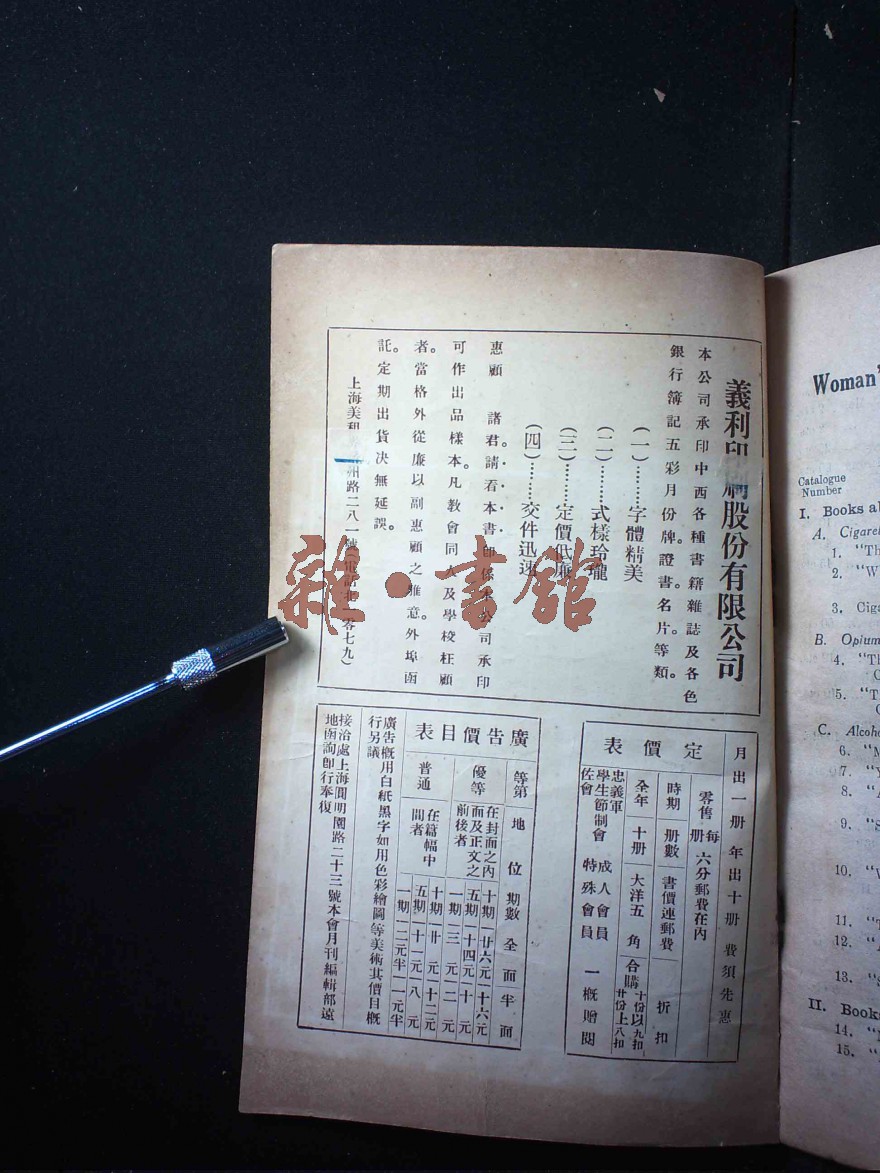 義利印刷股份有限公司
本公司承印中西各種書籍雜誌及各色
銀行簿記五彩月份牌。證書。名片。等類。
(一)………字體精美
(二)………式樣玲瓏
(三)………定價低廉
(四)………交件迅速
惠顧 諸君。請看本書。印係本公司承印
可作出品樣本。凡教會同人及學校枉顧
者。當格外從廉以副惠顧之雅意。外埠函
託。定期出貨决無延誤。
上海美租 州路二八一號(電話北 零七九)
定價表
月出一册 年出十册 費須先惠
零售 每册 六分郵費在內
時期 册數 書價連郵費 折扣
全年 十册 大洋五角 合購 十份以九扣 廿份上八扣
忠義軍
學生節制會 成人會員
佐會 特殊會員 一概贈閱
廣告價目表
等第 地位 期數 全面 半面
優等 在封面之內面及正文之前後者 十期 廿六元 十六元
五期 十四元 十元
一期 三元 二元
普通 在篇幅中間者 十期 廿元 十二元
五期 十一元 八元
一期 二元半 一元半
廣告概用白紙黑字如用色彩繪圖等美術其價目概
行另議
接洽處上海圓明園路二十三號本會月刊編輯部遠
地函詢即行奉復
雜·書館
Woman'
Catalogue
Number
I. Books a
A. Cigare
1. "Th
2. "W
3. Ciga
B. Opium
4. "Th
C
5. "T
C
C. Alcoho
6. "M
7. "Y
8. "A
9. "S
10. "W
11. "T
12.
13. "S
II. Book
14.
15.